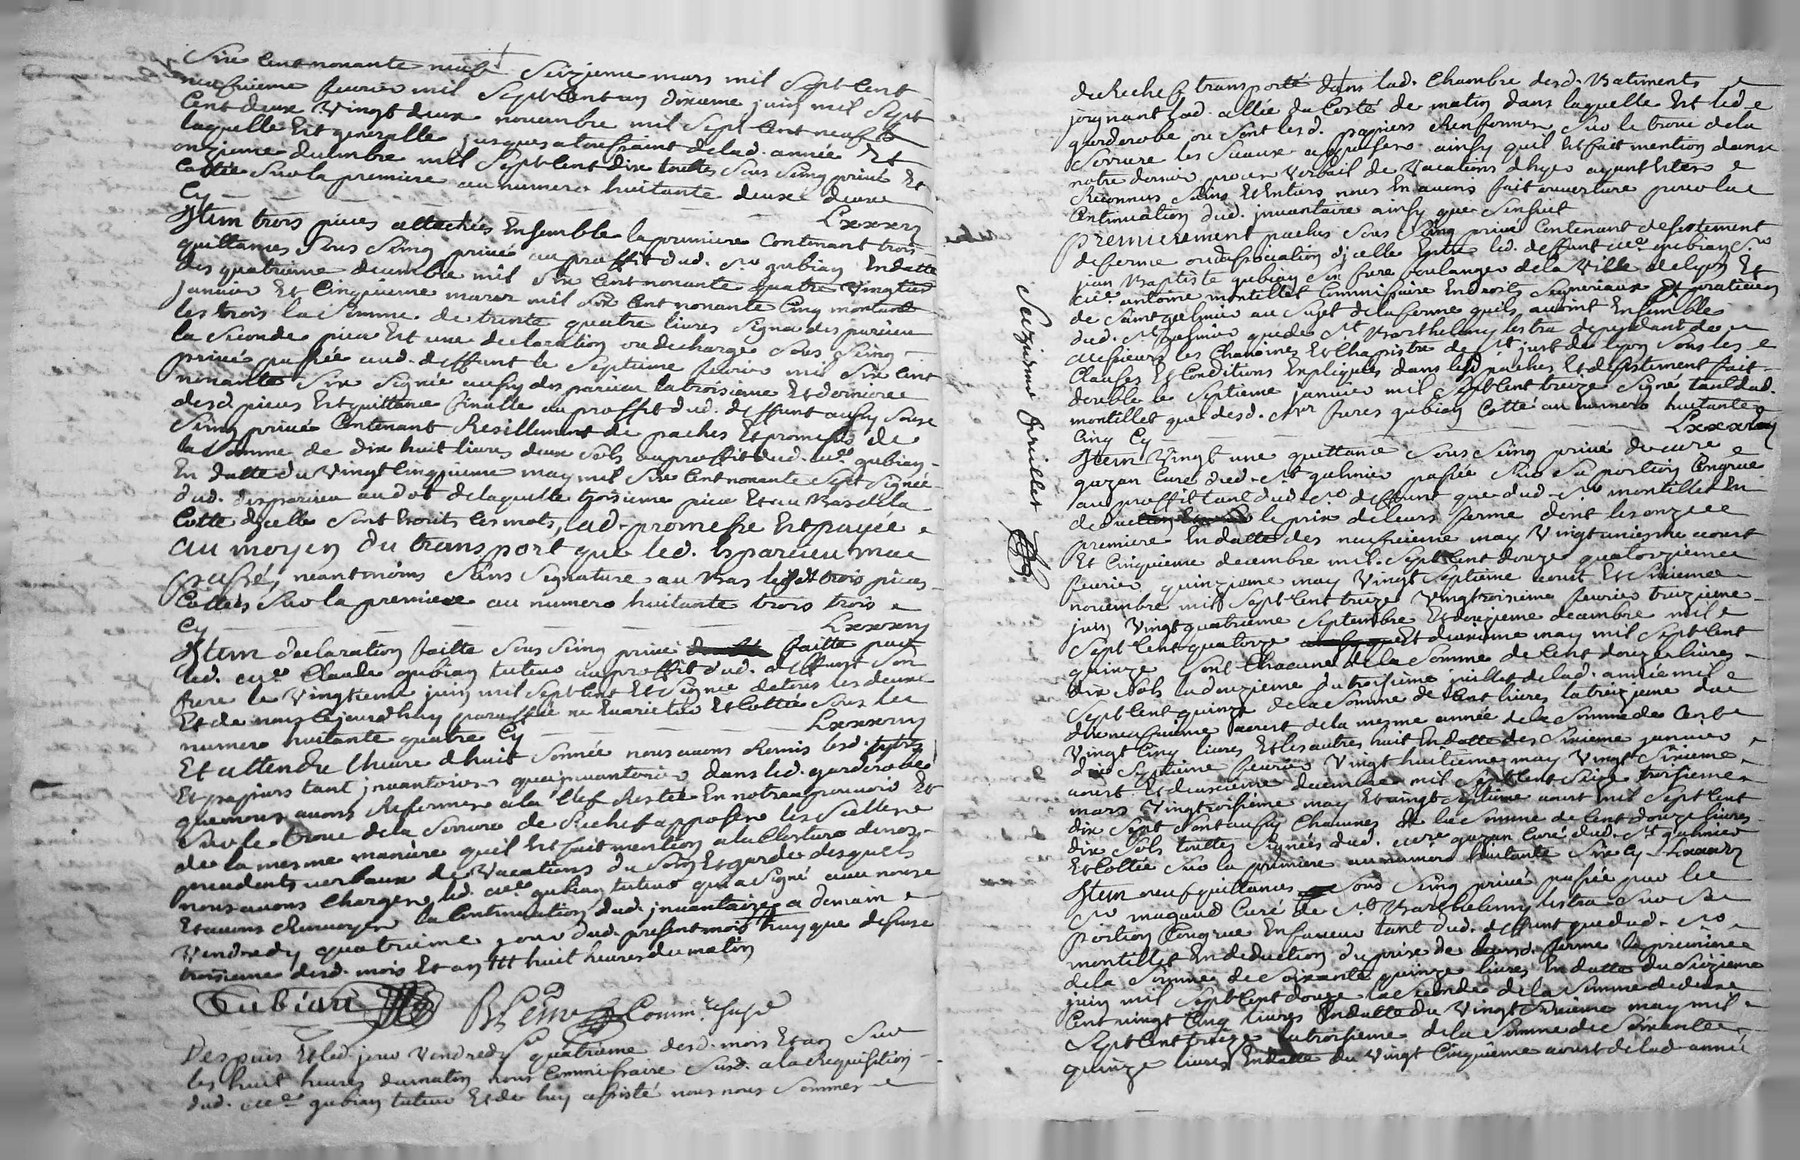 Six Cent nonante neuf Seizieme mars mil Sept Cent
neufvieme fevrier mil Sept Cent un dixieme juin mil Sept
Cent deux Vingt deux novembre mil Sept Cent neuf et
laquelle Est generalle jusques a toussaint de lad. année Et
onzieme decembre mil Sept Cent dix touttes Sous Seing privé Et
Cottée Sur la premiere au numero huitante deux deux
Cy LXXXII
Item trois pieces attachées Ensemble la premiere Contenant trois
quittances Sous Seing privé au proffit dud. Sr gubian En datte
des quatrieme decembre mil Six Cent nonante quatre Vingt
janvier Et Cinquieme mars mil Six Cent nonante Cinq montant
les trois la Somme de trente quatre livres Signé desparieu
la Seconde piece Est une declaration ou decharge Sous Seing
privé passée aud. deffunt le Septieme fevrier mil Six Cent
nonante Six Signée aussy desparieu la troisieme Et derniere
desd. pieces Est quittance finalle au proffit dud. deffunt aussy Sous
Seing privé Contenant Resiliment de paches Et promesse de
la Somme de dix huit livres deux Sols au proffit dud. gubian
En datte du Vingt Cinquieme may mil Six Cent nonante Sept Signée
dud. desparieu au dos de laquelle troisieme piece Et au Bas de la
Cotte dycelle Sont Ecrits les mots, lad. promesse Est payée
au moyen du transport que led. desparieu mae
passé, neantmoins Sans Signature au Bas lesd. trois pieces
Cottées Sur la premiere au numero huitante trois trois
Cy LXXXIII
Item declaration faitte Sous Seing privé faitte par
led. Claude gubian tuteur au proffit dud. deffunt Son
frere le Vingtieme juin mil Sept Cent Et Signée de tous les deux
Et de nous Cejourdhuy paraffée ne Varietur Et Cottée Sous le
numero huitante quatre Cy LXXXIIII
Et attendu lheure dhuit Sonnée nous avons Remis lesd. tiltres
Et papiers tant jnvantoriés qua jnvantorier dans led. garderobe
que nous avons Refermé a la Clef Restée En notre pouvoir Et
Sur le troue de la Serrure de Rechef apposé les Scelles
de la mesme maniere quil Est fait mention a la Closture de nos
precedents verbaux de Vacations du Soin Et garde desquels
nous avons Chargé led. gubian tuteur qui a Signé avec nous
Et avons Renvoyé la Continuation dud. jnvantaire a demain
Vendredy quatrieme jour dud. present mois huy que dessus
troisieme desd. mois Et an huit heures du matin
Gubian Commre Susd.
Despuis Et led. jour Vendredy quatrieme desd. mois Et an Sur
les huit heures du matin nous Commissaire Susd. a la Requisition
dud. gubian tuteur Et de luy assisté nous nous Sommes
de Rechef transporté dans lad. Chambre desd. Batiments
joignant lad. allée du Costé de matin dans laquelle Est led.
garderobe ou Sont lesd. papiers Renfermés Sur le troue de la
Serrure les Sceaux apposés ainsy quil Est fait mention dans
notre dernier proces Verbail de Vacations dhyer ayant Estés
Reconnus Sains Et Entiers nous En avons fait ouverture pour la
Continuation dud. jnvantaire ainsy que Sensuit
Premierement paches Sous Seing privé Contenant desistement
de ferme ou desociation dycelle Entre led. deffunt gubian Sr
jean Baptiste gubian Son frere boulanger de la Ville de lyon Et
antoine montillet Commissaire En droits Seigneriaux Et praticien
de Saint galmier au Sujet de la ferme quils avoint Ensemble
dud. St galmier que de St Barthelemy lestra dependant de
Messieurs les Chanoines Et Chapistre de St just de lyon Sous les
Clauses Et Conditions Expliqués dans lesd. paches Et desistement fait
double le Septieme janvier mil Sept Cent treize Signé tant dud.
montillet que desd. freres gubian Cotté au numero huitante
Cinq Cy LXXXV
Item Vingt une quittance Sous Seing privé du curé
gazan Curé dud. St galmier passée Sur Sa portion Congrue
au proffit tant dud. Sr deffunt que dud. Sr montillet En
deduction le prix de leurs ferme dont les onze
premiere En datte des neufvieme may Vingtuniesme aoust
Et Cinquieme decembre mil Sept Cent douze quatorzieme
fevrier quinzieme may Vingt Septieme aoust Et Sixieme
novembre mil Sept Cent treize Vingtroisieme fevrier treizieme
juin Vingtquatrieme Septembre Et dixieme decembre mil
Sept Cent quatorze Et deuxieme may mil Sept Cent
quinze Sont Chacune de la Somme de Cent douze livres
dix Sols la douzieme du troisieme juillet de lad. année mil
Sept Cent quinze de la Somme de Cent livres la treizieme du
dixneufvieme aoust de la mesme année de la Somme de Cent
Vingt Cinq livres Et les autres huit En datte des Sixieme janvier
dix Septieme fevrier Vingt huitieme may Vingt Sixieme
aoust Et deuxieme decembre mil Sept Cent Seize troisieme
mars Vingtroisieme may Et vingt Septieme aoust mil Sept Cent
dix Sept Sont aussy Chacunes de la Somme de Cent douze livres
dix Sols touttes Signées dud. gazan Curé dud. St galmier
Et Cottée Sur la premiere au numero huitante Six Cy LXXXVI
Item neuf quittances Sous Seing privé passée par le
Sr magaud Curé de St Barthelemy lestra Sur Sa
portion Congrue En faveur tant dud. deffunt que dud. Sr
montillet En deduction du prix de leursd. ferme la premiere
de la Somme de Soixante quinze livres En datte du Sixieme
juin mil Sept Cent douze la Seconde de la Somme de deux
Cent vingt Cinq livres En datte du Vingt Sixieme may mil
Sept Cent treize la troisieme de la Somme de Soixante
quinze livres En datte du Vingt Cinquieme aoust de lad. année
Seizieme feuillet